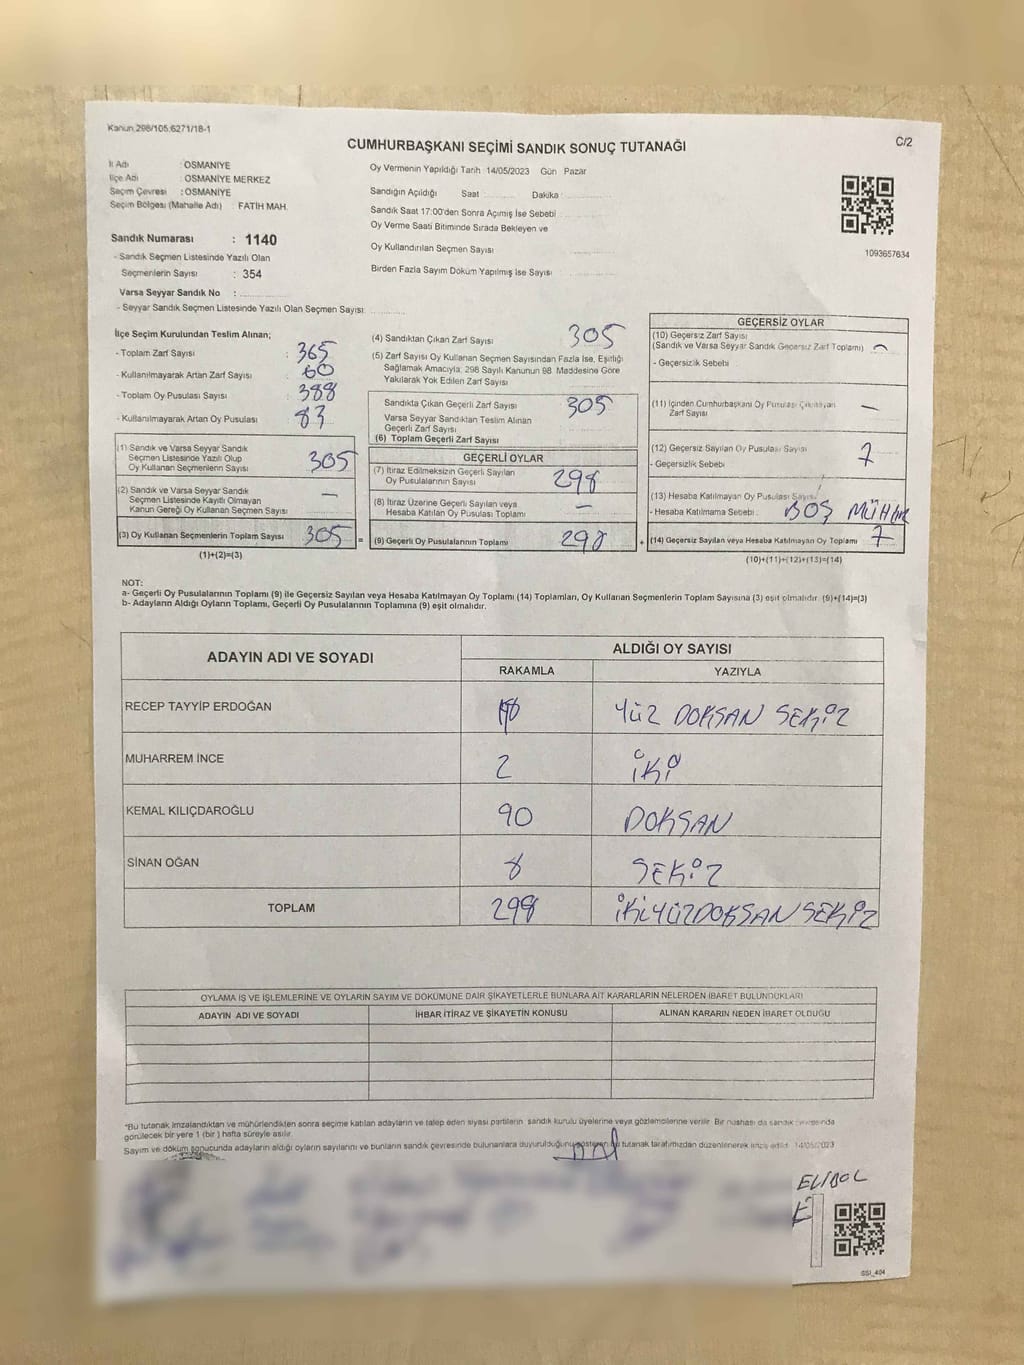 Kanun 298/105.6271/18-1
C/2
CUMHURBAŞKANI SEÇİMİ SANDIK SONUÇ TUTANAĞI
İl Adı : OSMANİYE
İlçe Adı : OSMANİYE MERKEZ
Seçim Çevresi : OSMANİYE
Seçim Bölgesi (Mahalle Adı) : FATİH MAH.
Sandık Numarası : 1140
- Sandık Seçmen Listesinde Yazılı Olan
Seçmenlerin Sayısı : 354
Varsa Seyyar Sandık No :
- Seyyar Sandık Seçmen Listesinde Yazılı Olan Seçmen Sayısı
Oy Vermenin Yapıldığı Tarih 14/05/2023 Gün Pazar
Sandığın Açıldığı Saat Dakika
Sandık Saat 17:00'den Sonra Açımış İse Sebebi
Oy Verme Saati Bitiminde Sırada Bekleyen ve
Oy Kullandırılan Seçmen Sayısı
Birden Fazla Sayım Döküm Yapılmış İse Sayısı
1093657634
İlçe Seçim Kurulundan Teslim Alınan;
- Toplam Zarf Sayısı : 365
- Kullanılmayarak Artan Zarf Sayısı : 60
- Toplam Oy Pusulası Sayısı : 388
- Kullanılmayarak Artan Oy Pusulası : 83
(1) Sandık ve Varsa Seyyar Sandık
Seçmen Listesinde Yazılı Olup
Oy Kullanan Seçmenlerin Sayısı 305
(2) Sandık ve Varsa Seyyar Sandık
Seçmen Listesinde Kayıtlı Olmayan
Kanun Gereği Oy Kullanan Seçmen Sayısı —
(3) Oy Kullanan Seçmenlerin Toplam Sayısı 305 =
(1)+(2)=(3)
(4) Sandıktan Çıkan Zarf Sayısı 305
(5) Zarf Sayısı Oy Kullanan Seçmen Sayısından Fazla İse, Eşitliği
Sağlamak Amacıyla; 298 Sayılı Kanunun 98. Maddesine Göre
Yakılarak Yok Edilen Zarf Sayısı
Sandıkta Çıkan Geçerli Zarf Sayısı 305
Varsa Seyyar Sandıktan Teslim Alınan
Geçerli Zarf Sayısı
(6) Toplam Geçerli Zarf Sayısı
GEÇERLİ OYLAR
(7) İtiraz Edilmeksizin Geçerli Sayılan
Oy Pusulalarının Sayısı 298
(8) İtiraz Üzerine Geçerli Sayılan veya
Hesaba Katılan Oy Pusulası Toplamı —
(9) Geçerli Oy Pusulalarının Toplamı 298 +
GEÇERSİZ OYLAR
(10) Geçersiz Zarf Sayısı
(Sandık ve Varsa Seyyar Sandık Geçersiz Zarf Toplamı) —
- Geçersizlik Sebebi
(11) İçinden Cumhurbaşkanı Oy Pusulası Çıkmayan
Zarf Sayısı —
(12) Geçersiz Sayılan Oy Pusulası Sayısı 7
- Geçersizlik Sebebi
(13) Hesaba Katılmayan Oy Pusulası Sayısı
- Hesaba Katılmama Sebebi : BOŞ MÜHÜR
(14) Geçersiz Sayılan veya Hesaba Katılmayan Oy Toplamı 7
(10)+(11)+(12)+(13)=(14)
NOT:
a- Geçerli Oy Pusulalarının Toplamı (9) ile Geçersiz Sayılan veya Hesaba Katılmayan Oy Toplamı (14) Toplamları, Oy Kullanan Seçmenlerin Toplam Sayısına (3) eşit olmalıdır. (9)+(14)=(3)
b- Adayların Aldığı Oyların Toplamı, Geçerli Oy Pusulalarının Toplamına (9) eşit olmalıdır.
ADAYIN ADI VE SOYADI ALDIĞI OY SAYISI
RAKAMLA YAZIYLA
RECEP TAYYİP ERDOĞAN YÜZ DOKSAN SEKİZ
MUHARREM İNCE 2 İKİ
KEMAL KILIÇDAROĞLU 90 DOKSAN
SİNAN OĞAN 8 SEKİZ
TOPLAM 298 İKİYÜZDOKSAN SEKİZ
OYLAMA İŞ VE İŞLEMLERİNE VE OYLARIN SAYIM VE DÖKÜMÜNE DAİR ŞİKAYETLERLE BUNLARA AİT KARARLARIN NELERDEN İBARET BULUNDUKLARI
ADAYIN ADI VE SOYADI İHBAR İTİRAZ VE ŞİKAYETİN KONUSU ALINAN KARARIN NEDEN İBARET OLDUĞU
*Bu tutanak imzalandıktan ve mühürlendikten sonra seçime katılan adayların ve talep eden siyasi partilerin sandık kurulu üyelerine veya gözlemcilerine verilir. Bir nüshası da sandık çevresinde
görülecek bir yere 1 (bir) hafta süreyle asılır.
Sayım ve döküm sonucunda adayların aldığı oyların sayılarını ve bunların sandık çevresinde bulunanlara duyurulduğunu gösteren bu tutanak tarafımızdan düzenlenerek imza edildi. 14/05/2023
ELİBOL
GSI_404